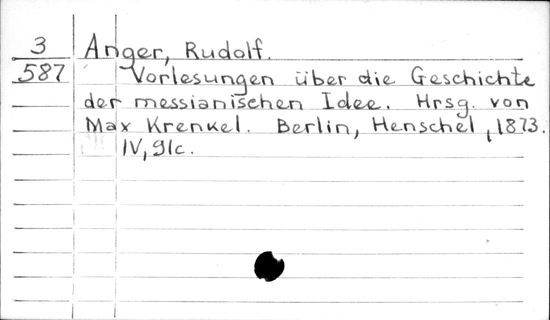 3 Anger, Rudolf.
587 Vorlesungen über die Geschichte
der messianischen Idee. Hrsg. von
Max Krenkel. Berlin, Henschel, 1873.
IV, 91c.